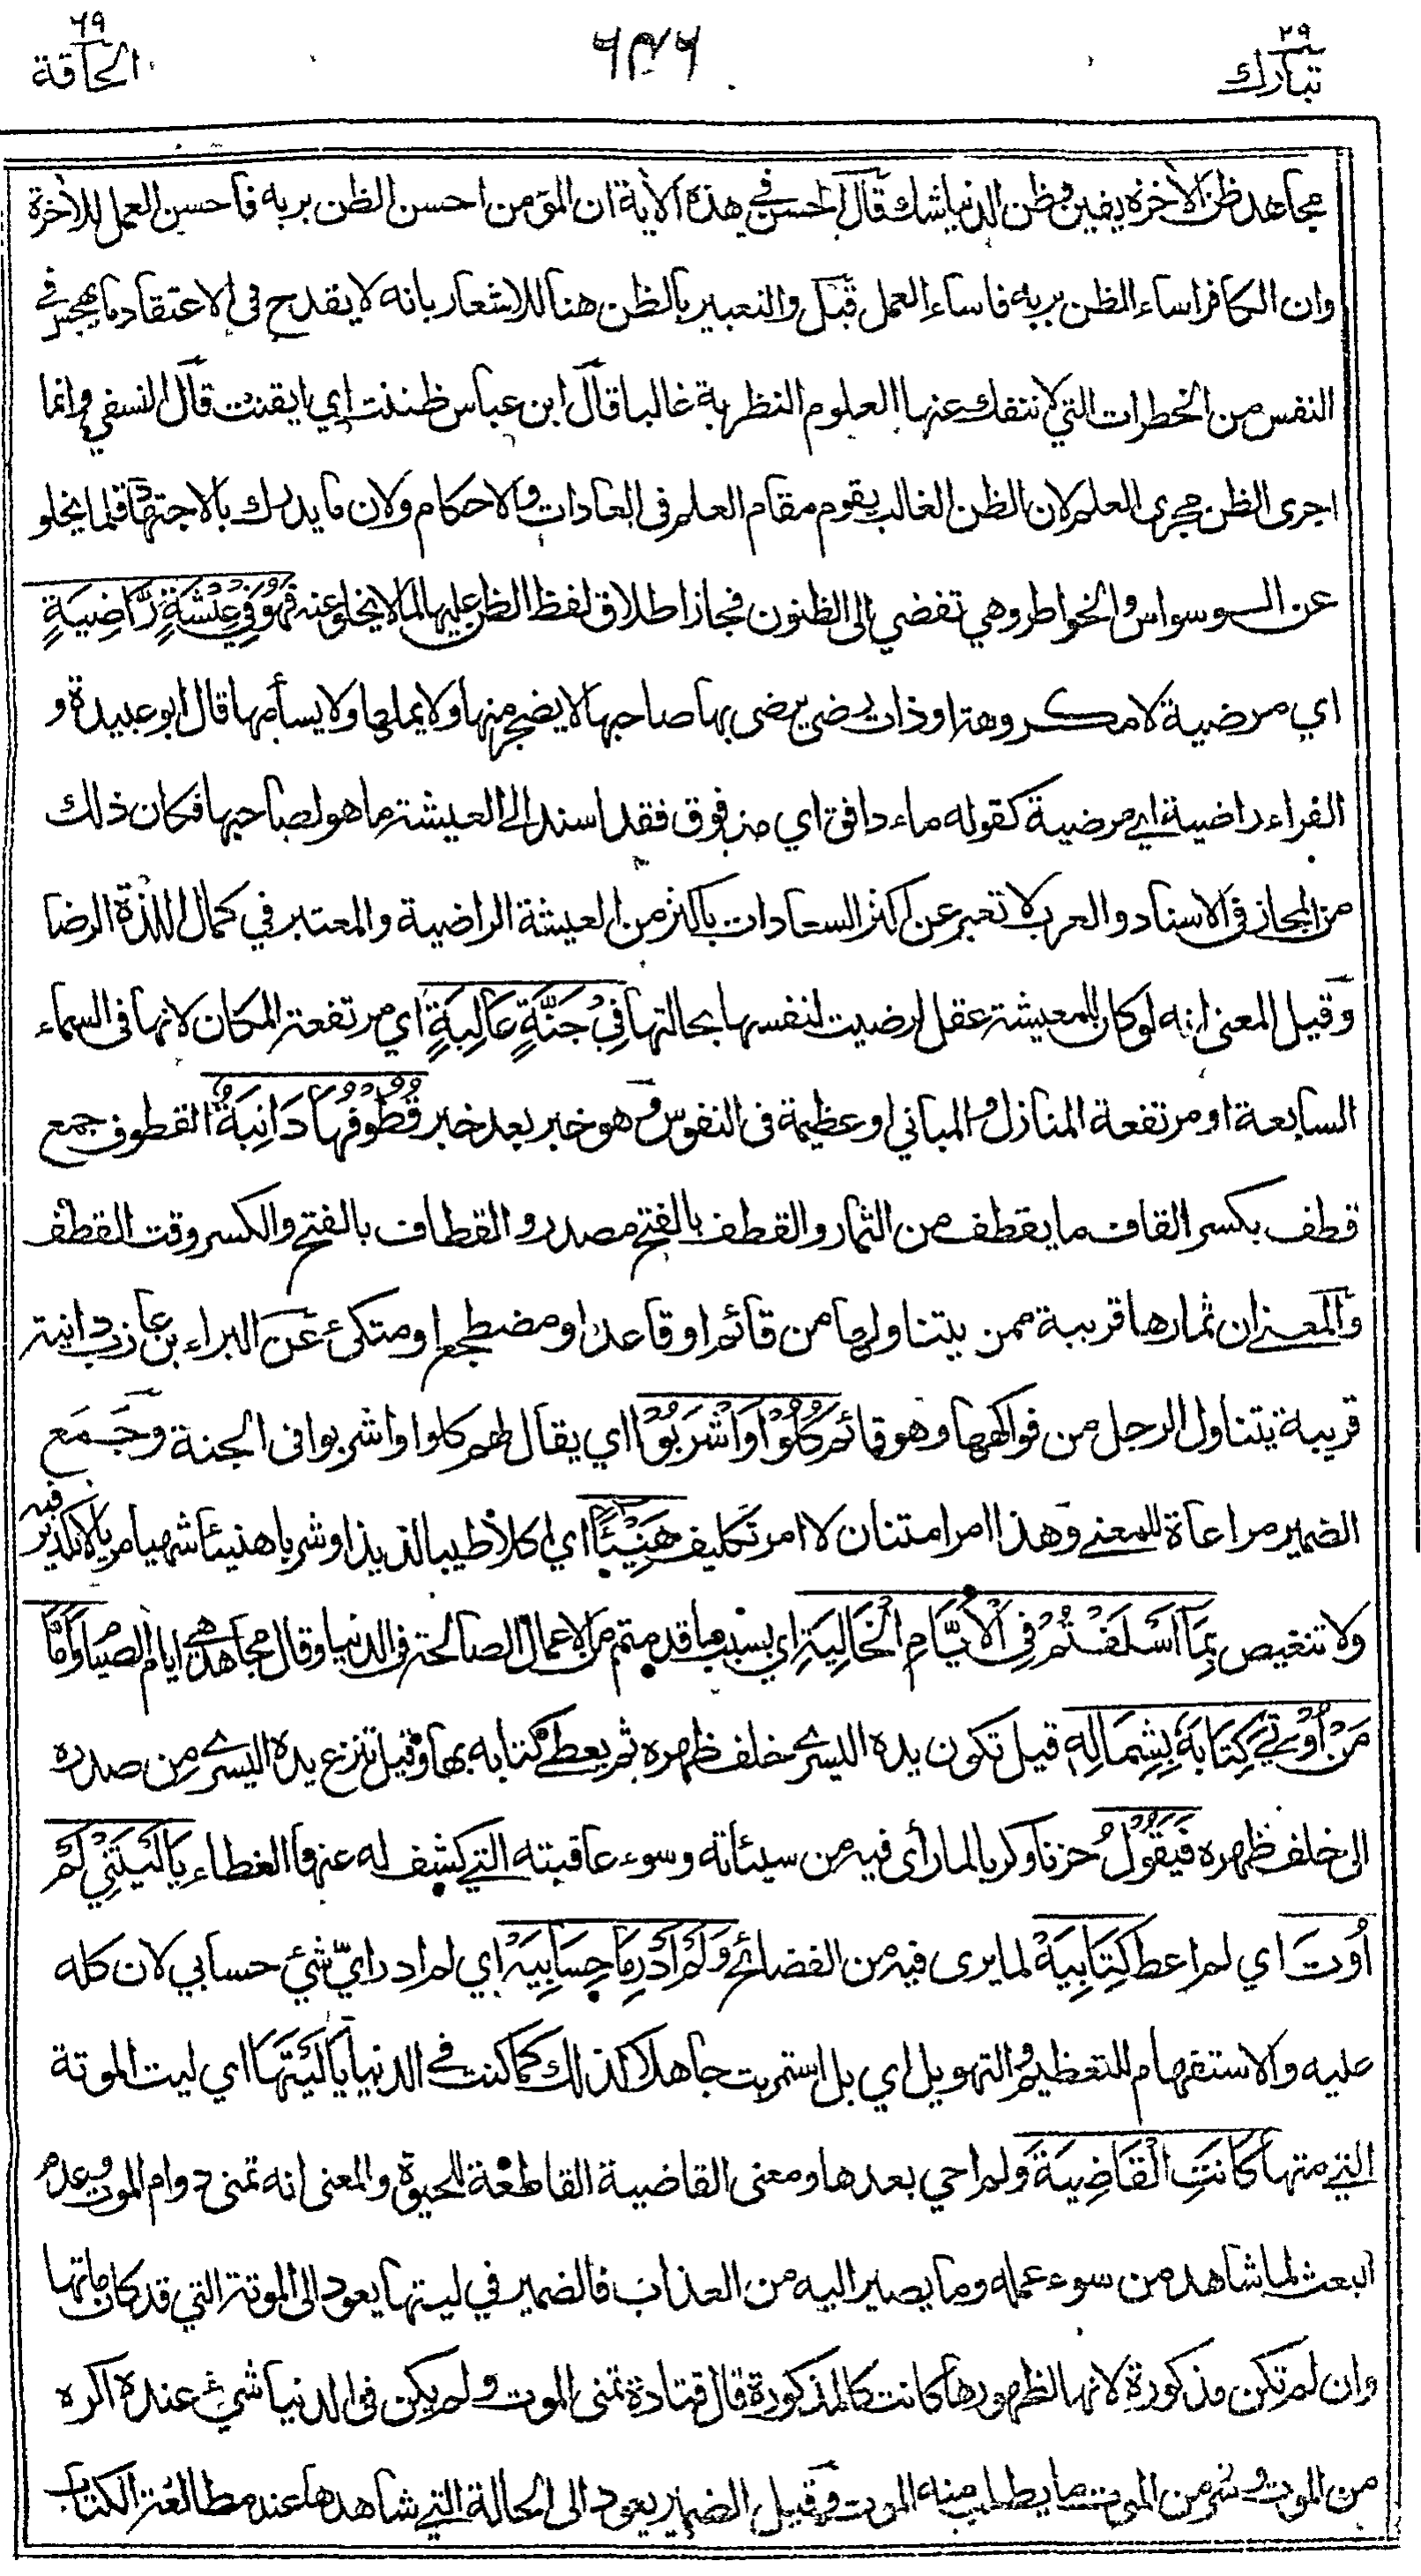 ٢٩
تبارك
٦٤٦
٦٩
الحاقة
مجاهد ظن الأخرة يقين وظن الدنيا شك قال الحسن في هذه الاية ان المؤمن احسن الظن بربه فاحسن العمل للأخرة
وان الكافر اساء الظن بربه فاساء العمل قيل والتعبير بالظن هنا للاشعار بانه لا يقدح في الاعتقاد ما يهجس في
النفس من الخطرات التي لا تنفك عنها العلوم النظرية غالبا قال ابن عباس ظننت اي ايقنت قال النسفي وانما
اجرى الظن مجرى العلم لان الظن الغالب يقوم مقام العلم في العادات والاحكام ولان ما يدرك بالاجتهاد قلما يخلو
عن الوسواس والخواطر وهي تفضي الى الظنون فجاز اطلاق لفظ الظن عليها لما لا يخلو عنه فَهُوَ فِي عِيْشَةٍ رَّاضِيَةٍ
اي مرضية لا مكروهة او ذات رضى يرضى بها صاحبها لا يضجر منها ولا يملها ولا يسأمها قال ابو عبيدة و
الفراء راضية اي مرضية كقوله ماء دافق اي مدفوق فقد اسند الى العيشة ما هو لصاحبها فكان ذلك
من المجاز في الاسناد والعرب لا تعبر عن اكثر السعادات باكثر من العيشة الراضية والمعتبر في كمال اللذة الرضا
وقيل المعنى انه لو كان للمعيشة عقل لرضيت لنفسها بحالتها فِيْ جَنَّةٍ عَالِيَةٍ اي مرتفعة المكان لانها في السماء
السابعة او مرتفعة المنازل والمباني او عظيمة في النفوس وهو خبر بعد خبر قُطُوْفُهَا دَانِيَةٌ القطوف جمع
قطف بكسر القاف ما يقطف من الثمار والقطف بالفتح مصدر والقطاف بالفتح والكسر وقت القطف
والمعنى ان ثمارها قريبة ممن يتناولها من قائم او قاعد او مضطجع او متكئ عن البراء بن عازب دانية
قريبة يتناول الرجل من فواكهها وهو قائم كُلُوْا وَاشْرَبُوْا اي يقال لهم كلوا واشربوا في الجنة وجمع
الضمير مراعاة للمعنى وهذا امر امتنان لا امر تكليف هَنِيْئًا اي اكلا طيبا لذيذا وشربا هنيئا شهيا مريا لا تكدير فيه
ولا تنغيص بِمَا اَسْلَفْتُمْ فِي الْاَيَّامِ الْخَالِيَةِ اي بسبب ما قدمتم من الاعمال الصالحة في الدنيا وقال مجاهد هي ايام الصيام وَاَمَّا
مَنْ اُوْتِيَ كِتَابَهٗ بِشِمَالِهٖ قيل تكون يده اليسرى خلف ظهره ثم يعطى كتابه بها وقيل تنزع يده اليسرى من صدره
الى خلف ظهره فَيَقُوْلُ حزنا وكربا لما رأى فيه من سيئاته وسوء عاقبته التي كشف له عنها الغطاء يَا لَيْتَنِيْ لَمْ
اُوْتَ اي لم اعط كِتَابِيَهْ لما يرى فيه من الفضائح وَلَمْ اَدْرِ مَا حِسَابِيَهْ اي لم ادر ايّ شئ حسابي لان كله
عليه والاستفهام للتعظيم والتهويل اي بل استمريت جاهلا كذلك كما كنت في الدنيا يَا لَيْتَهَا اي ليت الموتة
التي متها كَانَتِ الْقَاضِيَةَ ولم احي بعدها ومعنى القاضية القاطعة للحيوة والمعنى انه تمنى دوام الموت وعدم
البعث لما شاهد من سوء عمله وما يصير اليه من العذاب فالضمير في ليتها يعود الى الموتة التي قد كان ماتها
وان لم تكن مذكورة لانها لظهورها كانت كالمذكورة قال قتادة تمنى الموت ولم يكن في الدنيا شئ عنده اكره
من الموت وشر من الموت ما يطلب منه الموت وقيل الضمير يعود الى الحالة التي شاهدها عند مطالعة الكتاب